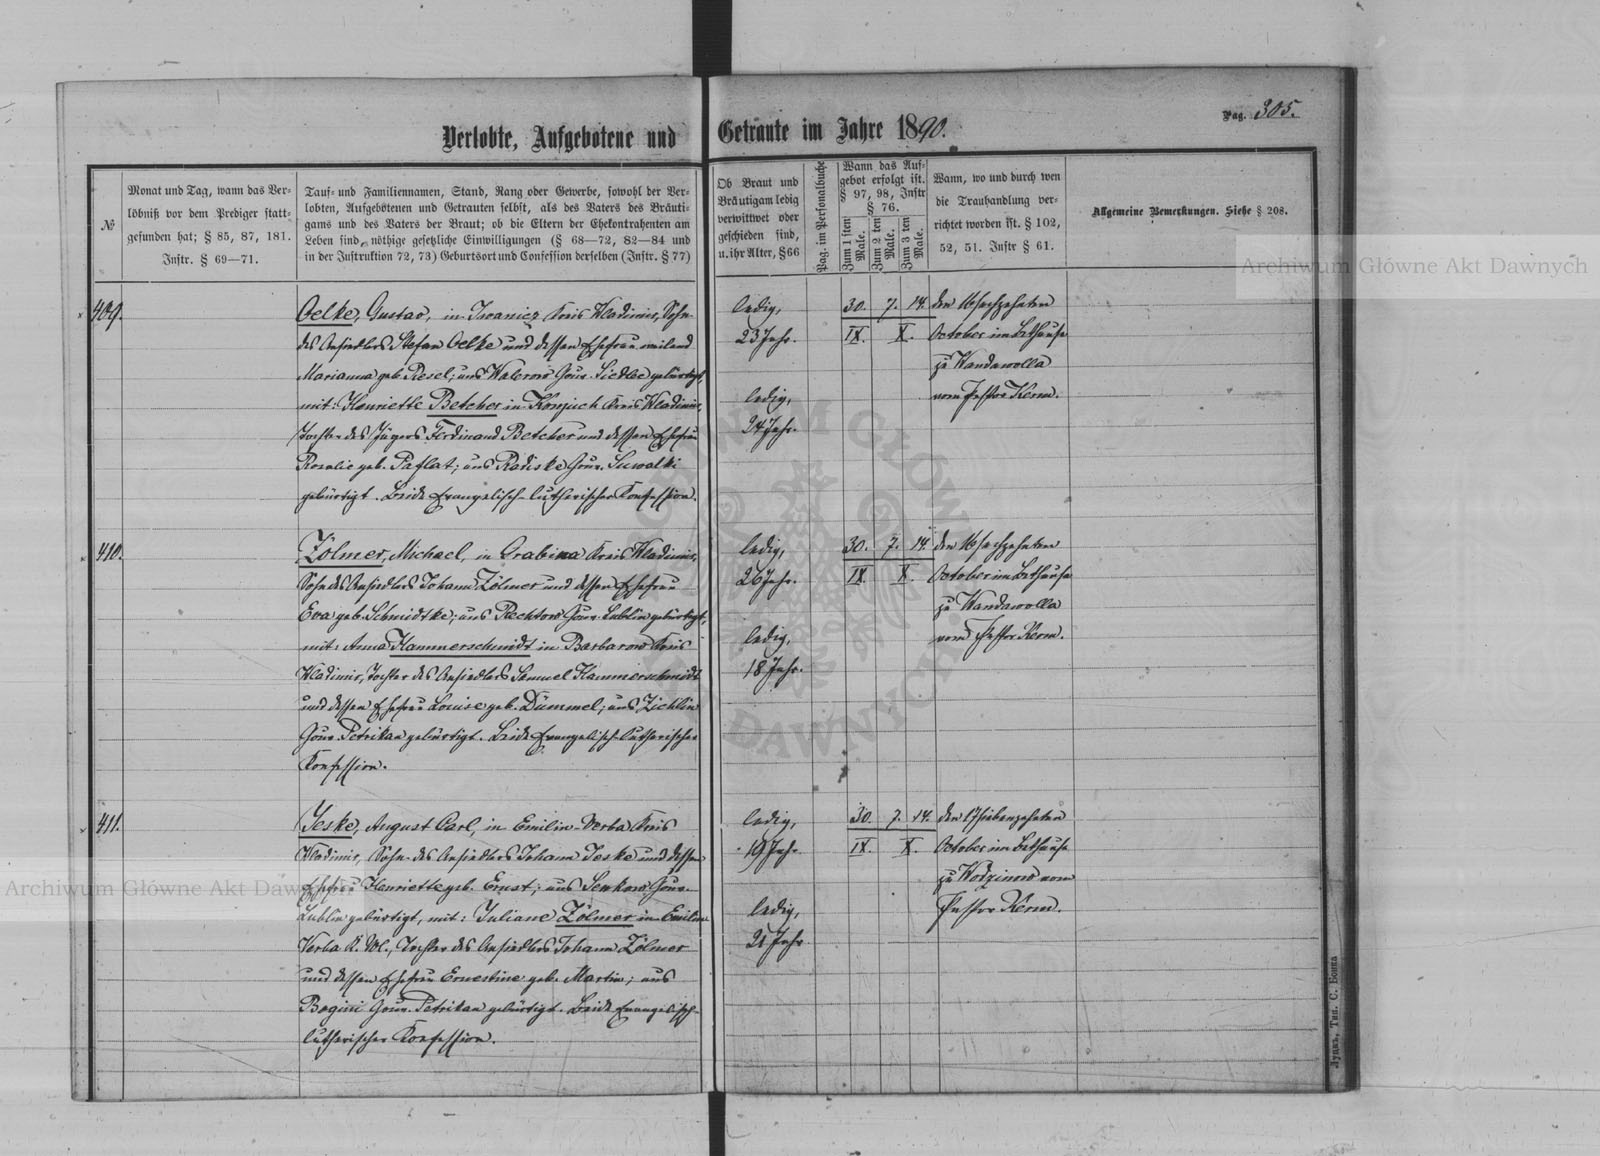 Pag. 305.
Verlobte, Aufgebotene und Getraute im Jahre 1890.
№
Monat und Tag, wann das Ver-
löbniß vor dem Prediger statt-
gefunden hat; § 85, 87, 181.
Instr. § 69—71.
Tauf- und Familiennamen, Stand, Rang oder Gewerbe, sowohl der Ver-
lobten, Aufgebotenen und Getrauten selbst, als des Vaters des Bräuti-
gams und des Vaters der Braut; ob die Eltern der Ehekontrahenten am
Leben sind, nöthige gesetzliche Einwilligungen (§ 68—72, 82—84 und
in der Instruktion 72, 73) Geburtsort und Confession derselben (Instr. § 77)
Ob Braut und
Bräutigam ledig
verwittwet oder
geschieden sind,
u. ihr Alter, § 66
Pag. im Personalbuche
Wann das Auf-
gebot erfolgt ist.
§ 97, 98, Instr
§ 76.
Zum 1 sten
Male.
Zum 2 ten
Male.
Zum 3 ten
Male.
Wann, wo und durch wen
die Trauhandlung ver-
richtet worden ist. § 102,
52, 51. Instr § 61.
Allgemeine Bemerkungen. Siehe § 208.
409.
Oelke, Gustav, in Iwanicz Kreis Wladimir, Sohn
des Ansiedlers Stefan Oelke und dessen Ehefrau weiland
Marianna geb. Resel; aus Walerow Gouv. Siedlce gebürtigt,
mit: Henriette Betcher in Konjuch Kreis Wladimir,
Tochter des Jägers Ferdinand Betcher und dessen Ehefrau
Rosalie geb. Paflat; aus Radiske Gouv. Suwalki
gebürtigt. Beide Evangelisch-lutherischer Konfession.
ledig,
23 Jahr.
ledig,
24 Jahr.
30. 7. 14.
IX. X.
den 16 sechzehnten
October im Bethause
zu Wandawolla
vom Pastor Kerm.
410.
Zölmer, Michael, in Grabina Kreis Wladimir,
Sohn des Ansiedlers Johann Zölmer und dessen Ehefrau
Eva geb. Schmidtke; aus Rechtow Gouv. Lublin gebürtigt,
mit: Anna Hammerschmidt in Barbarow Kreis
Wladimir, Tochter des Ansiedlers Samuel Hammerschmidt
und dessen Ehefrau Louise geb. Dümmel; aus Zichlin
Gouv. Petrikau gebürtigt. Beide Evangelisch-lutherischer
Konfession.
ledig,
26 Jahr.
ledig,
18 Jahr.
30. 7. 14.
IX. X.
den 16 sechzehnten
October im Bethause
zu Wandawolla
vom Pastor Kerm.
411.
Jeske, August Carl, in Emilin-Werba Kreis
Wladimir, Sohn des Ansiedlers Johann Jeske und dessen
Ehefrau Henriette geb. Ernst; aus Senkow Gouv.
Lublin gebürtigt, mit: Juliane Zölmer in Emilin
Werba K. Wl., Tochter des Ansiedlers Johann Zölmer
und dessen Ehefrau Ernestine geb. Martin; aus
Bogini Gouv. Petrikau gebürtigt. Beide Evangelisch-
lutherischer Konfession.
ledig,
19 Jahr
ledig,
21 Jahr
30. 7. 14.
IX. X.
den 17 siebenzehnten
October im Bethause
zu Wodzinow vom
Pastor Kerm.
Луцкъ, Тип. С. Бонка
Archiwum Główne Akt Dawnych
Archiwum Główne Akt Dawnych
ARCHIWUM GŁÓWNE AKT DAWNYCH